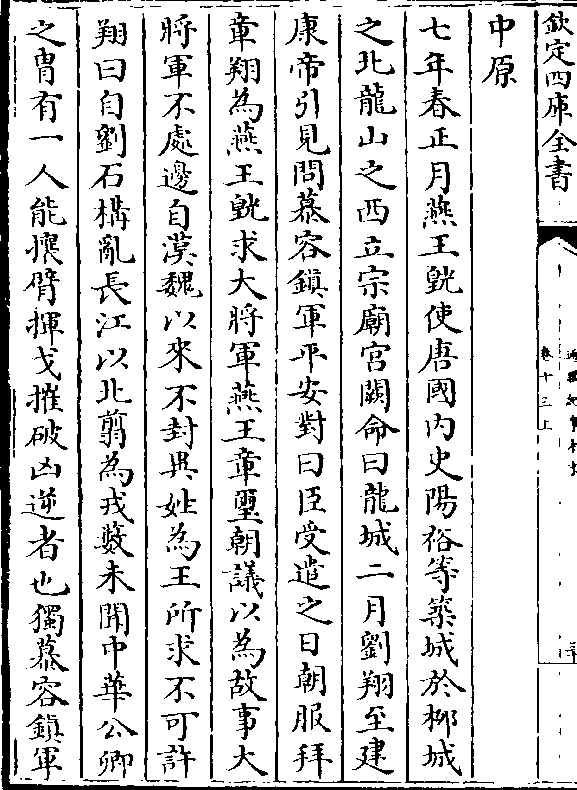 欽定四庫全書
卷十三上
中原
七年春正月燕王皝使唐國内史陽裕等築城於柳城
之北龍山之西立宗廟宫闕命曰龍城二月劉翔至建
康帝引見問慕容鎮軍平安對曰臣受遣之日朝服拜
章翔為燕王皝求大將軍燕王章璽朝議以為故事大
將軍不處邊自漢魏以來不封異姓為王所求不可許
翔曰自劉石構亂長江以北翦為戎藪未聞中華公卿
之胄有一人能攘臂揮戈摧破凶逆者也獨慕容鎮軍